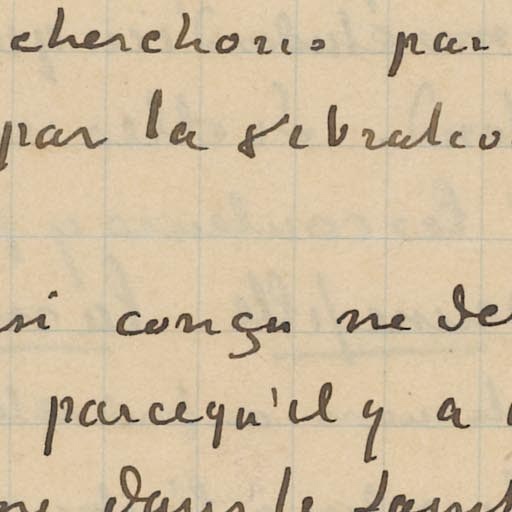 cherchons par
par la vibratio
si conçu ne de
parcequ'il y a
dans le